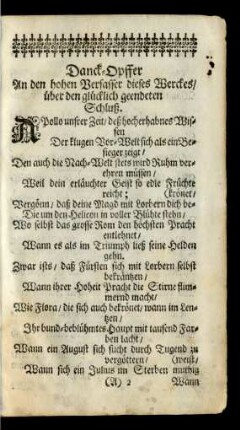 Danck-Opffer
An den hohen Verfasser dieses Werckes/
über den glücklich geendeten
Schluß.
APollo unsrer Zeit/ deß hocherhabnes Wis-
sen
Der klugen Vor-Welt sich als ein Be-
sieger zeigt/
Den auch die Nach-Welt stets wird Ruhm ver-
ehren müssen/
Weil dein erläuchter Geist so edle Früchte
reicht; (krönet/
Vergönn/ daß deine Magd mit Lorbern dich be-
Die um den Helicon in voller Blühte stehn/
Wo selbst das grosse Rom den höchsten Pracht
entlehnet/
Wann es als im Triumph ließ seine Helden
gehn.
Zwar ists/ daß Fürsten sich mit Lorbern selbst
bekräntzen/
Wann ihrer Hoheit Pracht die Stirne flim-
mernd macht/
Wie Flora/ die sich auch bekrönet/ wann im Len-
tzen/
Ihr bund-beblühmtes-Haupt mit tausend Far-
ben lacht/
Wann ein August sich sucht durch Tugend zu
vergöttern/
Wann sich ein Julius im Sterben muthig
(A) 2 Wann